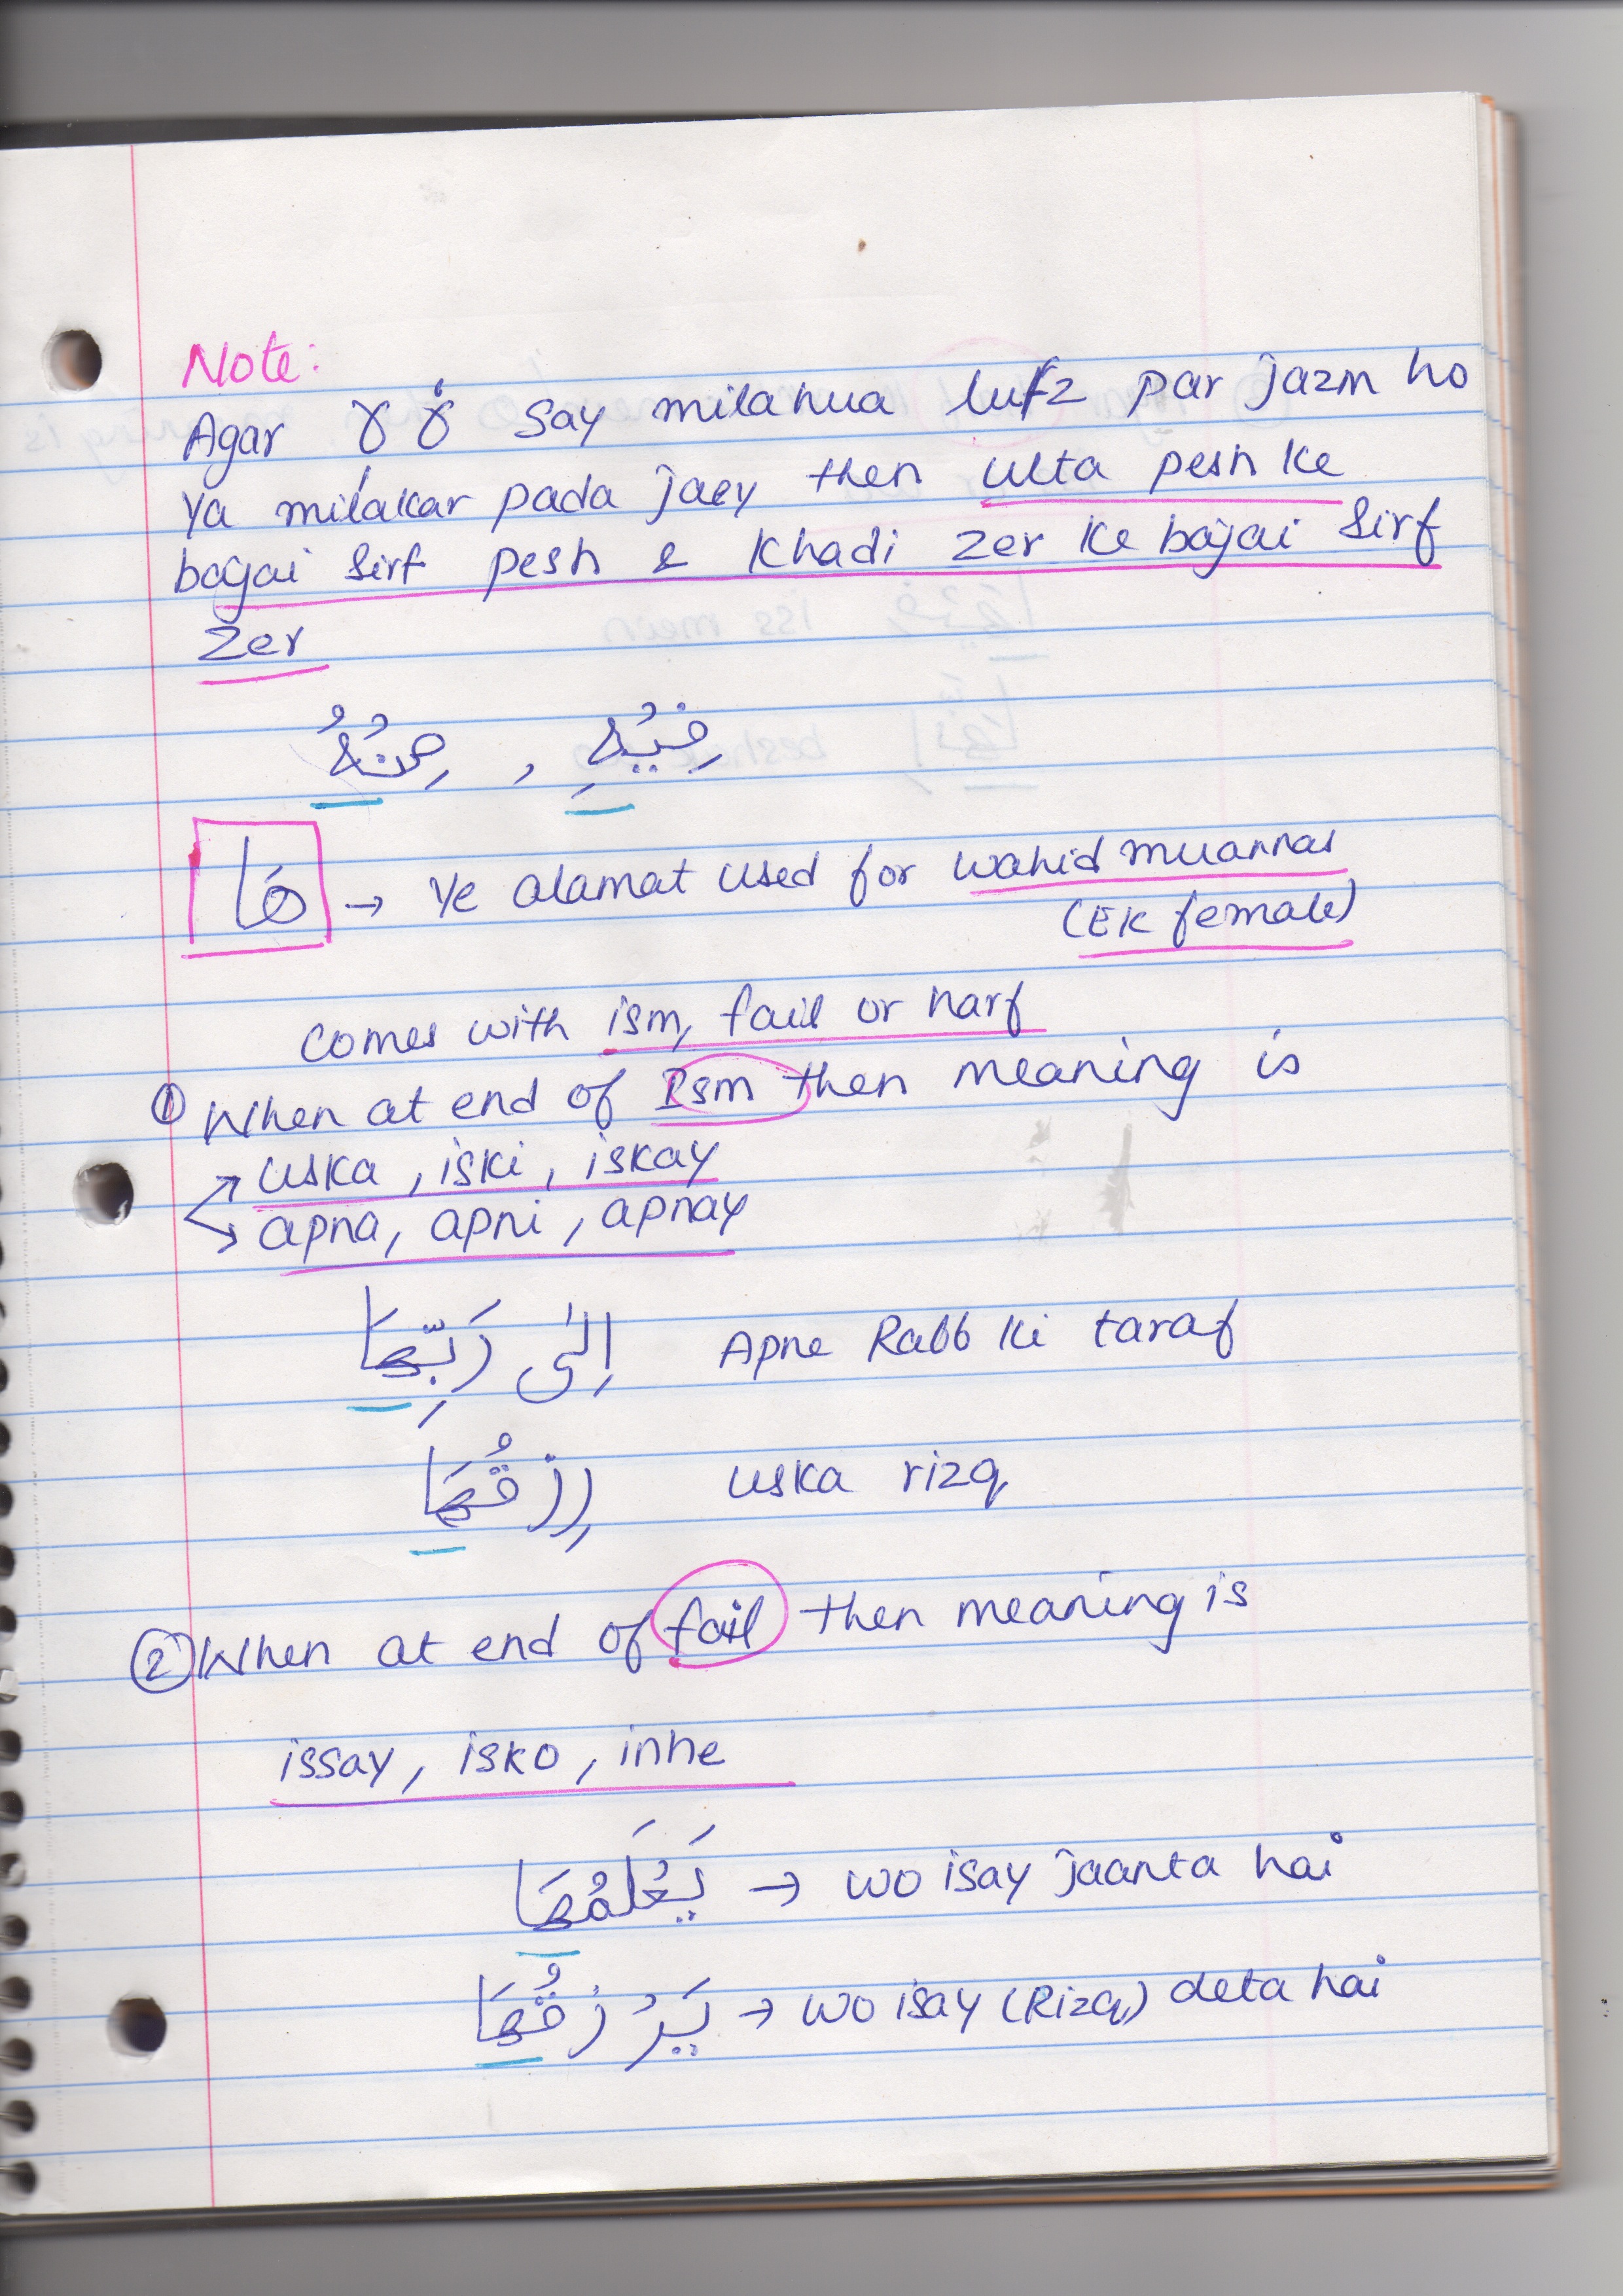 Note:
Agar هٖ هٗ say milahua lufz par jazm ho
ya milakar pada jaey then ulta pesh ke
bajai sirf pesh & khadi zer ke bajai sirf
zer
فِيْهِ , مِنْهُ
هَا → Ye alamat used for wahid muannas
(Ek female)
comes with ism, fail or harf
① When at end of Ism then meaning is
uska, iski, iskay
apna, apni, apnay
اِلٰى رَبِّهَا Apne Rabb ki taraf
رِزْقُهَا uska rizq
② When at end of fail then meaning is
issay, isko, inhe
يَعْلَمُهَا → wo isay jaanta hai
يَرْزُقُهَا → wo isay (Rizq) deta hai